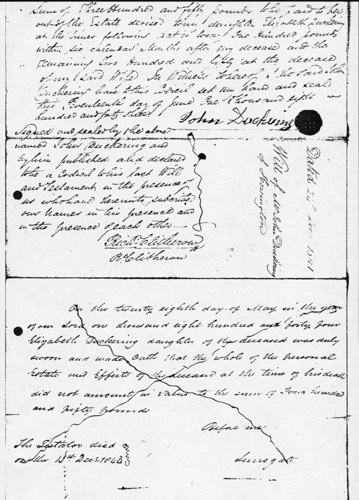 Sum of Three Hundred and fifty pounds to be paid to her
out of the Estate devised to my daughter Elizabeth Duckering
at the times following that is to say One Hundred pounds
within six calendar Months after my decease and the
remaining two Hundred and fifty at the decease
of my said Wife In Witness whereof I the said John
Duckering have to this Codicil set my hand and seal
this Seventeenth day of June One Thousand eight
hundred and forty three
John Duckering
Signed and sealed by the above
named John Duckering and
by him published and declared
to be a Codicil to his last Will
and Testament in the presence of
us who have hereunto subscribed
our names in his presence and
in the presence of each other
Richd Clitherow
R Clitherow
Dated 1841
Will of Mr John Duckering
of
On the twenty eighth day of May in the year
of our Lord one thousand eight hundred and forty four
Elizabeth Duckering daughter of the deceased was duly
sworn and made Oath that the whole of the Personal
Estate and Effects of the deceased at the time of his death
did not amount in value to the sum of Four hundred
and fifty pounds
Before me
Surrogate
The Testator died
on the 13th Decr 1843